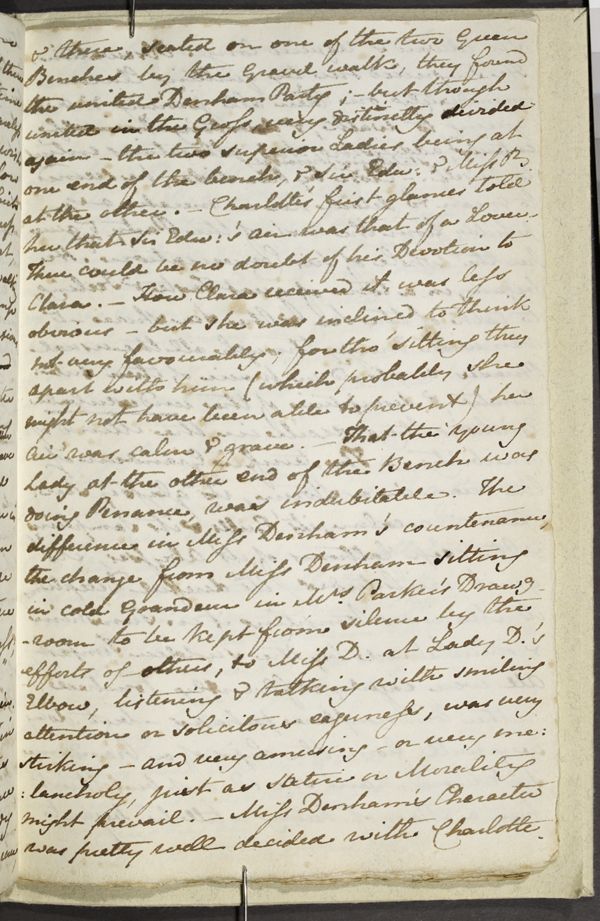 & there, seated on one of the two Green
Benches by the Gravel walk, they found
the united Denham Party; – but though
united in the Gross, very distinctly divided
again – the two superior Ladies being at
one end of the bench, & Sir Edw: & Miss B.
at the other. – Charlotte's first glance told
her that Sir Edw:'s air was that of a Lover. –
There could be no doubt of his Devotion to
Clara. – How Clara received it, was less
obvious – but she was inclined to think
not very favourably; for tho' sitting thus
apart with him (which probably she
might not have been able to prevent) her
air was calm & grave. – That the young
Lady at the other end of the Bench was
doing Penance, was indubitable. The
difference in Miss Denham's countenance,
the change from Miss Denham sitting
in cold Grandeur in Mrs Parker's Drawg
-room to be kept from silence by the
efforts of others, to Miss D. at Lady D.'s
Elbow, listening & talking with smiling
attention or solicitous eagerness, was very
striking – and very amusing – or very me:
:lancholy, just as Satire or Morality
might prevail. – Miss Denham's Character
was pretty well decided with Charlotte.